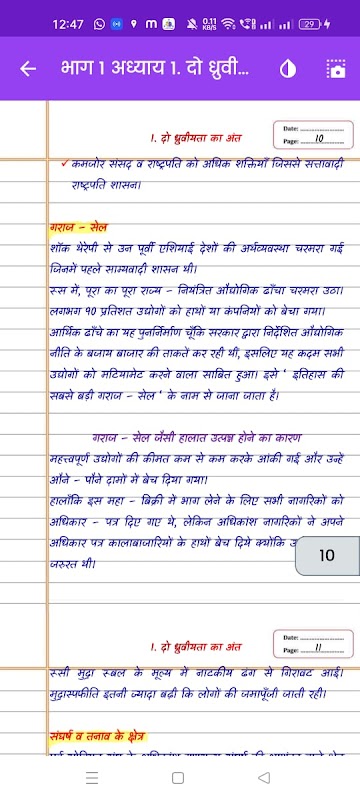 12:47
0.11 KB/S
29
भाग 1 अध्याय 1. दो ध्रुवी...
Date:
1. दो ध्रुवीयता का अंत
Page: 10
✓ कमजोर संसद व राष्ट्रपति को अधिक शक्तियाँ जिससे सत्तावादी
राष्ट्रपति शासन।
गराज – सेल
शॉक थेरेपी से उन पूर्वी एशियाई देशों की अर्थव्यवस्था चरमरा गई
जिनमें पहले साम्यवादी शासन थी।
रूस में, पूरा का पूरा राज्य – नियंत्रित औद्योगिक ढाँचा चरमरा उठा।
लगभग 90 प्रतिशत उद्योगों को हाथों या कंपनियों को बेचा गया।
आर्थिक ढाँचे का यह पुनर्निर्माण चूँकि सरकार द्वारा निर्देशित औद्योगिक
नीति के बजाय बाजार की ताकतें कर रही थीं, इसलिए यह कदम सभी
उद्योगों को मटियामेट करने वाला साबित हुआ। इसे ' इतिहास की
सबसे बड़ी गराज – सेल ' के नाम से जाना जाता है।
गराज – सेल जैसी हालात उत्पन्न होने का कारण
महत्त्वपूर्ण उद्योगों की कीमत कम से कम करके आंकी गई और उन्हें
औने – पौने दामों में बेच दिया गया।
हालाँकि इस महा – बिक्री में भाग लेने के लिए सभी नागरिकों को
अधिकार – पत्र दिए गए थे, लेकिन अधिकांश नागरिकों ने अपने
अधिकार पत्र कालाबाजारियों के हाथों बेच दिये क्योकि
जरुरत थी।
10
Date:
1. दो ध्रुवीयता का अंत
Page: 11
रूसी मुद्रा रूबल के मूल्य में नाटकीय ढंग से गिरावट आई।
मुद्रास्फीति इतनी ज्यादा बढ़ी कि लोगों की जमापूँजी जाती रही।
संघर्ष व तनाव के क्षेत्र